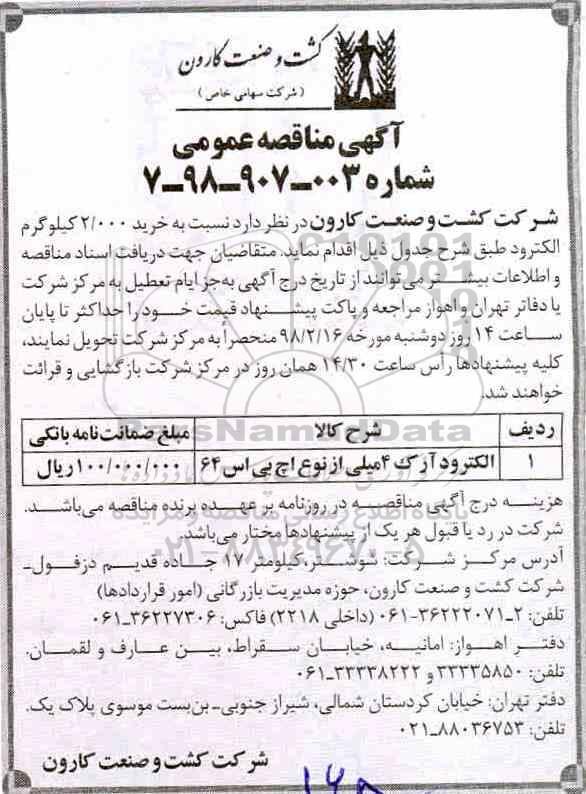 کشت و صنعت کارون
( شرکت سهامی خاص )
آگهی مناقصه عمومی
شماره ۰۰۳-۹۰۷-۹۸-۷
شرکت کشت و صنعت کارون در نظر دارد نسبت به خرید ۲/۰۰۰ کیلوگرم
الکترود طبق شرح جدول ذیل اقدام نماید. متقاضیان جهت دریافت اسناد مناقصه
و اطلاعات بیشتر می‌توانند از تاریخ درج آگهی به‌جز ایام تعطیل به مرکز شرکت
یا دفاتر تهران و اهواز مراجعه و پاکت پیشنهاد قیمت خود را حداکثر تا پایان
ساعت ۱۴ روز دوشنبه مورخه ۹۸/۲/۱۶ منحصراً به مرکز شرکت تحویل نمایند،
کلیه پیشنهادها رأس ساعت ۱۴/۳۰ همان روز در مرکز شرکت بازگشایی و قرائت
خواهند شد.
ردیف شرح کالا مبلغ ضمانت‌نامه بانکی
۱ الکترود آرک ۴ میلی از نوع اچ بی اس ۶۴ ۱۰۰/۰۰۰/۰۰۰ ریال
هزینه درج آگهی مناقصه در روزنامه بر عهده برنده مناقصه می‌باشد.
شرکت در رد یا قبول هر یک از پیشنهادها مختار می‌باشد.
آدرس مرکز شرکت: شوشتر، کیلومتر ۱۷ جاده قدیم دزفول-
شرکت کشت و صنعت کارون، حوزه مدیریت بازرگانی (امور قراردادها)
تلفن: ۲-۳۶۲۲۲۰۷۱-۰۶۱ (داخلی ۲۲۱۸) فاکس: ۳۶۲۲۷۳۰۶-۰۶۱
دفتر اهواز: امانیه، خیابان سقراط، بین عارف و لقمان.
تلفن: ۳۳۳۳۵۸۵۰ و ۳۳۳۳۸۲۲۲-۰۶۱
دفتر تهران: خیابان کردستان شمالی، شیراز جنوبی-بن‌بست موسوی پلاک یک.
تلفن: ۸۸۰۳۶۷۵۳-۰۲۱
شرکت کشت و صنعت کارون
ParsNamadData
پایگاه اطلاع رسانی مناقصه و مزایده
۰۲۱-۸۸۳۴۹۶۷۰-۵